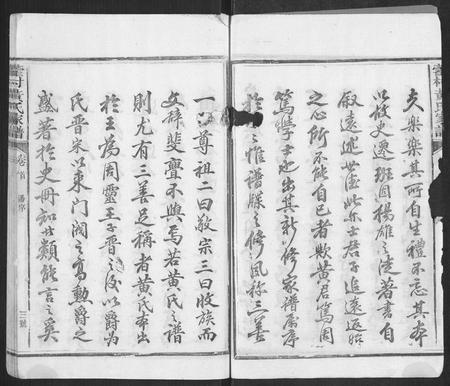 夫樂樂其所自生禮不忘其本
以故史遷班固楊雄之徒著書自
叙遠述世德此亦士君子追遠返始
之心所不能自已者歟黄君篤周
篤學士也出其新修家譜屬序
於惟譜牒之修風称三善
一曰尊祖二曰敬宗三曰收族而
文辞斐亹不與焉若黄氏之譜
則尤有三善足稱者黄氏本出
於王為周靈王子晋之後以爵為
氏晋宋以来門閥之高勲爵之
盛著於史冊如此類能言之莫
黄氏家譜
卷首
譜序
三號